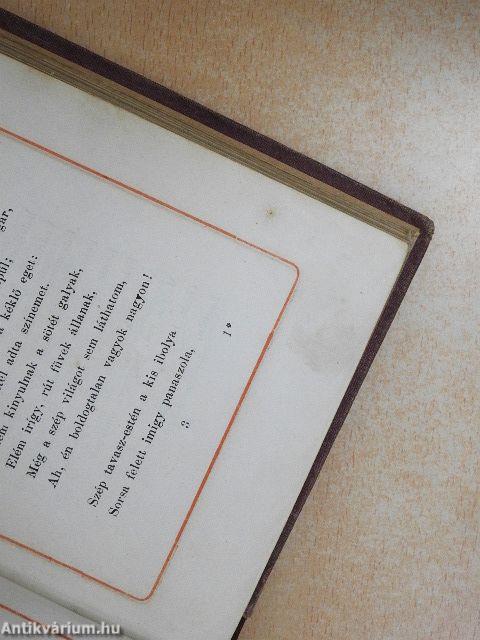 a kéklő eget:
adta szinemet.
kinyulnak a sötét galyak,
Elém irigy, rút füvek állanak,
Még a szép világot sem láthatom,
Ah, én boldogtalan vagyok nagyon!
Szép tavasz-estén a kis ibolya
Sorsa felett imigy panaszola,
3
1*
Antikvárium.hu